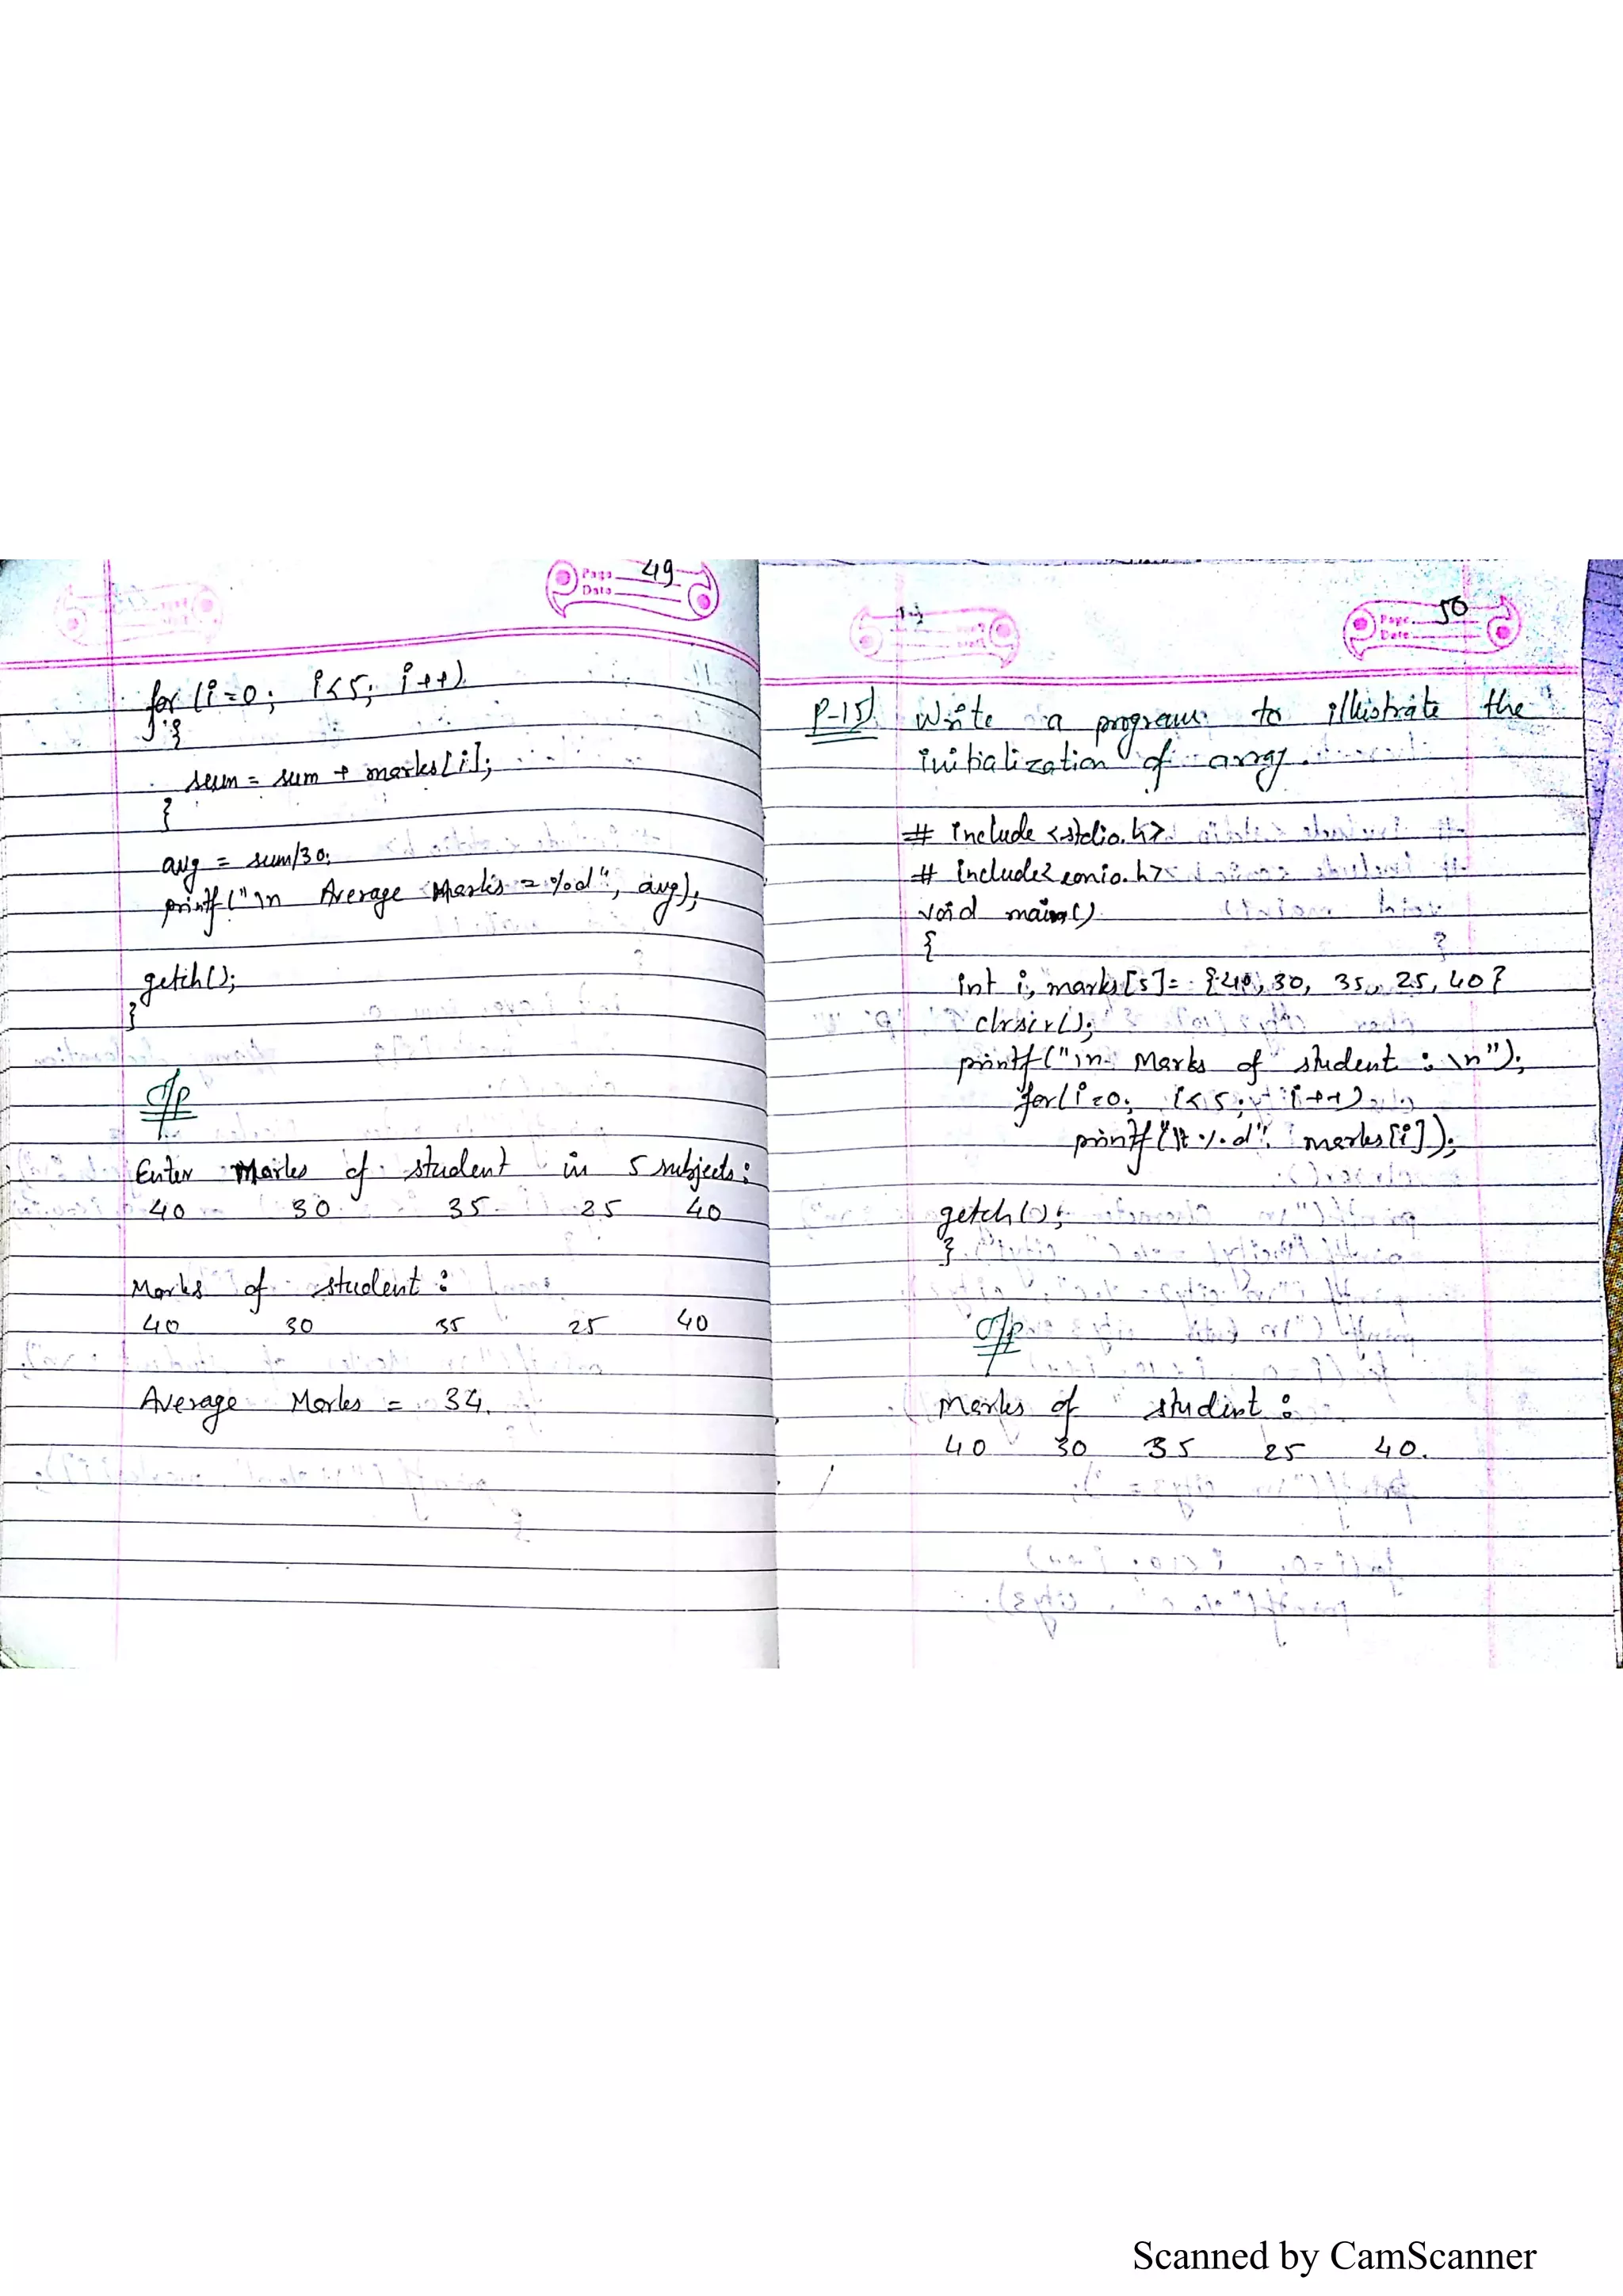 Page 49
Date
for (i=0; i<5; i++)
{
sum = sum + marks[i];
}
avg = sum/30;
printf("\n Average Marks = %d", avg);
getch();
}
O/p
Enter Marks of student in 5 subjects:
40 30 35 25 40
Marks of student :
40 30 35 25 40
Average Marks = 34.
Page 50
Date
P-15) Write a program to illustrate the
initialization of array.
# include <stdio.h>
# include<conio.h>
void main()
{
int i, marks[5]= {40, 30, 35, 25, 40}
clrscr();
printf("\n Marks of student : \n");
for(i=0; i<5; i++)
printf("\t %d", marks[i]);
getch();
}
O/p
Marks of student :
40 30 35 25 40.
Scanned by CamScanner